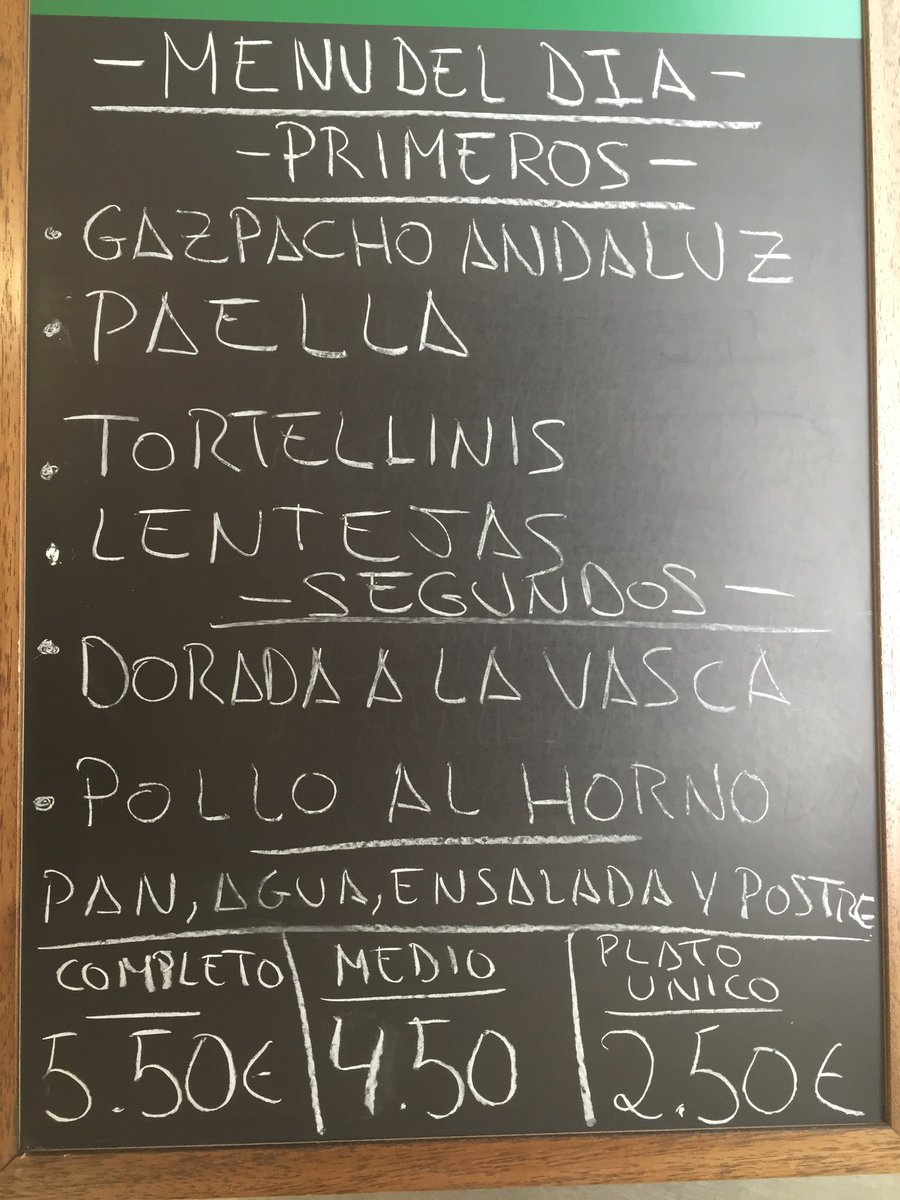 - MENU DEL DIA -
- PRIMEROS -
• GAZPACHO ANDALUZ
• PAELLA
• TORTELLINIS
• LENTEJAS
- SEGUNDOS -
• DORADA A LA VASCA
• POLLO AL HORNO
PAN, AGUA, ENSALADA Y POSTRE
COMPLETO
5.50€
MEDIO
4.50
PLATO
UNICO
2.50€